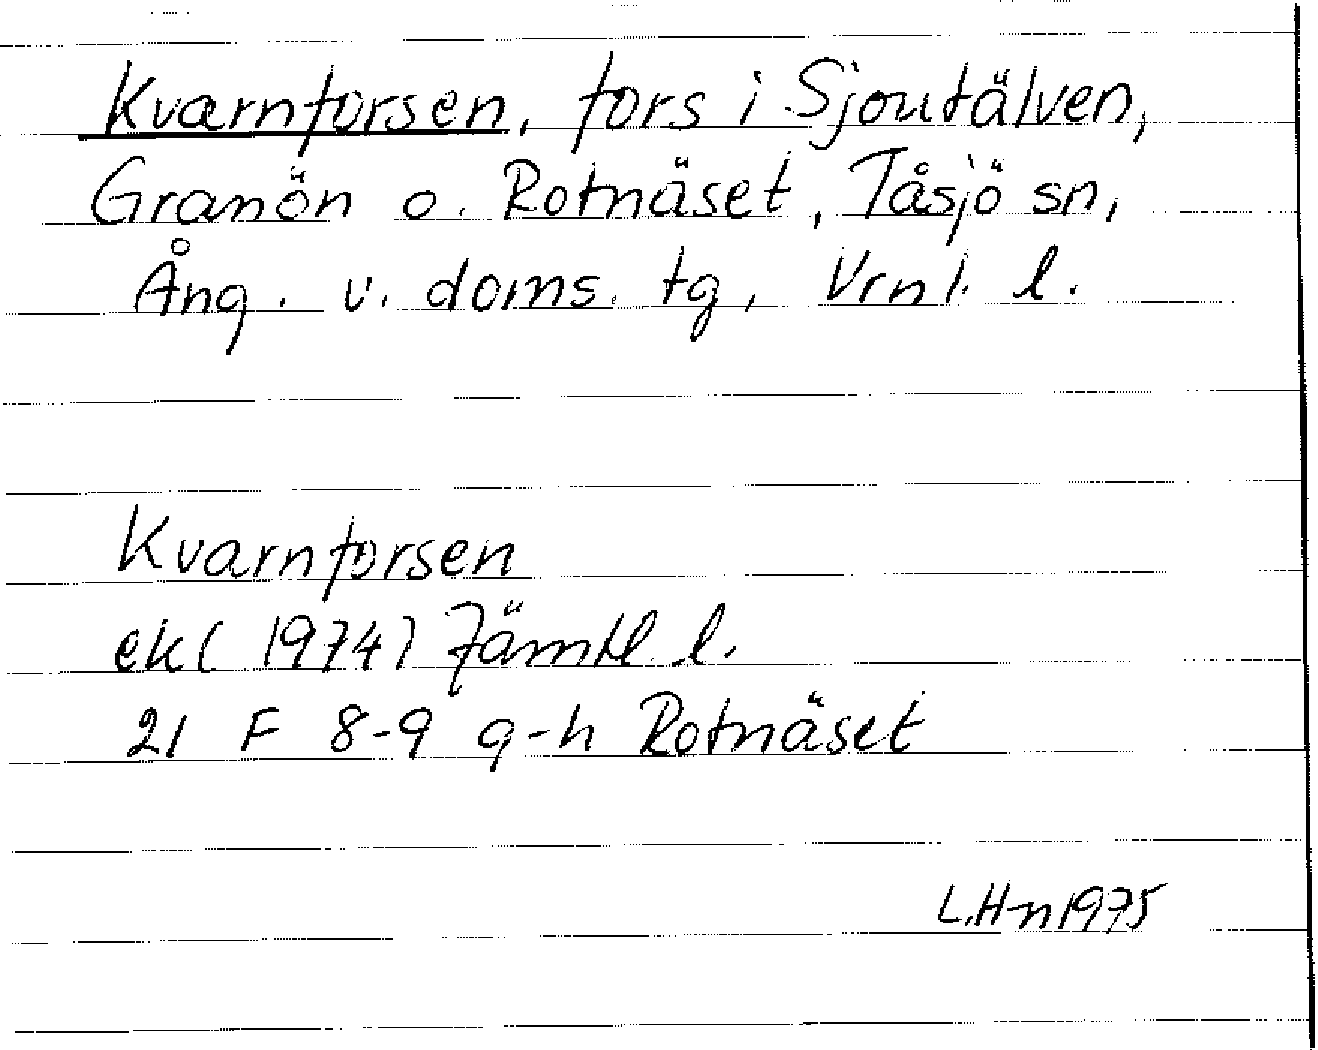 Kvarnforsen, fors i Sjoutälven,
Granön o. Rotnäset, Tåsjö sn,
Ång. v. doms. tg, Vrnl. l.
Kvarnforsen
ek (1974) Jämtl l.
21 F 8-9 g-h Rotnäset
L.H-n 1975